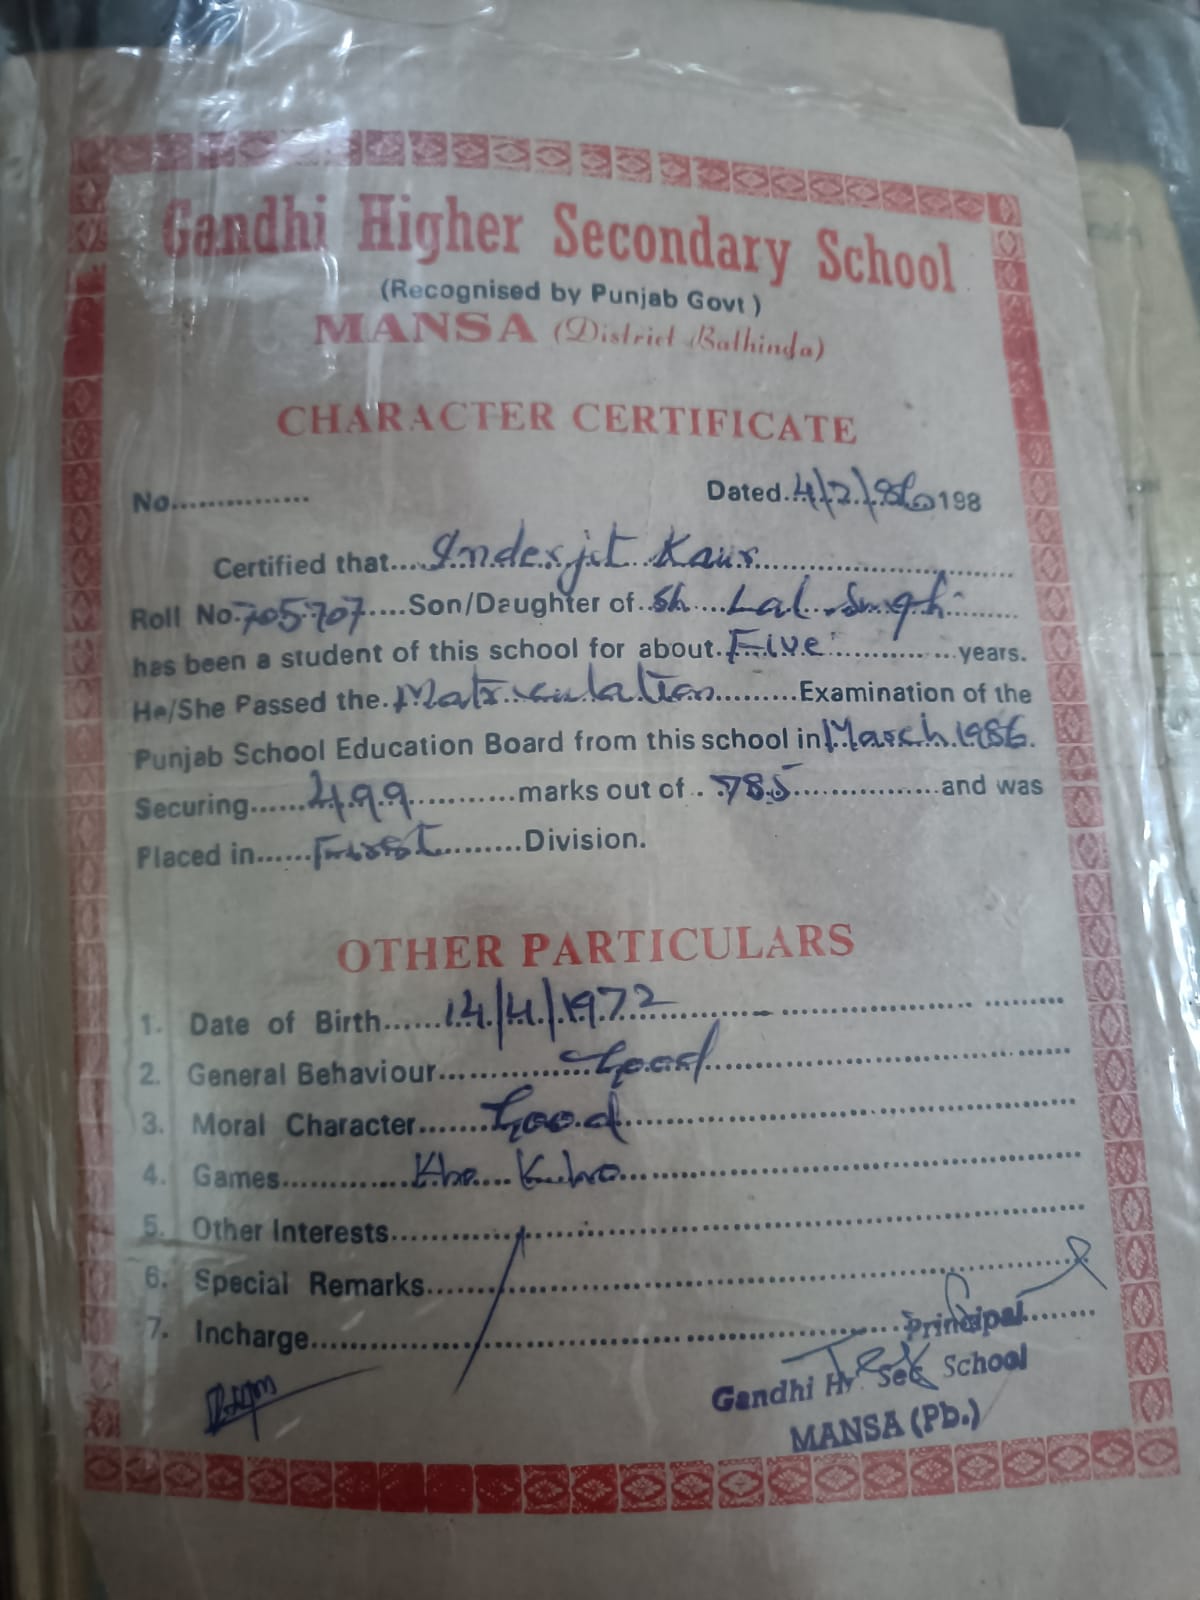 Gandhi Higher Secondary School
(Recognised by Punjab Govt)
MANSA (District Bathinda)
CHARACTER CERTIFICATE
No............... Dated 4/2/ 198
Certified that....Inderjit Kaur....................
Roll No. 705707....Son/Daughter of..Sh....Lal..Singh........
has been a student of this school for about.Five..............years.
He/She Passed the.Matriculation.........Examination of the
Punjab School Education Board from this school in March.1986.
Securing......499...........marks out of..785................and was
Placed in......First.........Division.
OTHER PARTICULARS
1. Date of Birth......14/4/1972....................
2. General Behaviour..............Good....................
3. Moral Character.......Good....................
4. Games.............Kho....Kho....................
5. Other Interests....................
6. Special Remarks....................
7. Incharge....................
Principal
Gandhi Hr. Sec School
MANSA (Pb.)